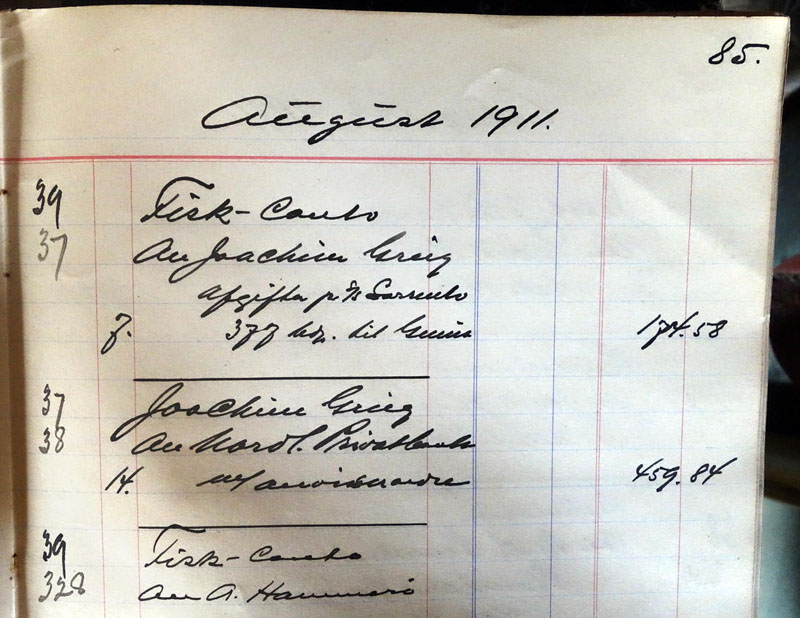 85.
August 1911.
39 Fisk-Conto
37 An Joachim Grieg
Afgifter pr S/S Sorrento
7. 377 bdr. til Genua 174.58
37 Joachim Grieg
38 An Nordl. Privatbank
14. m/ anvisn. 459.84
39 Fisk-Conto
328 An A. Hammerö